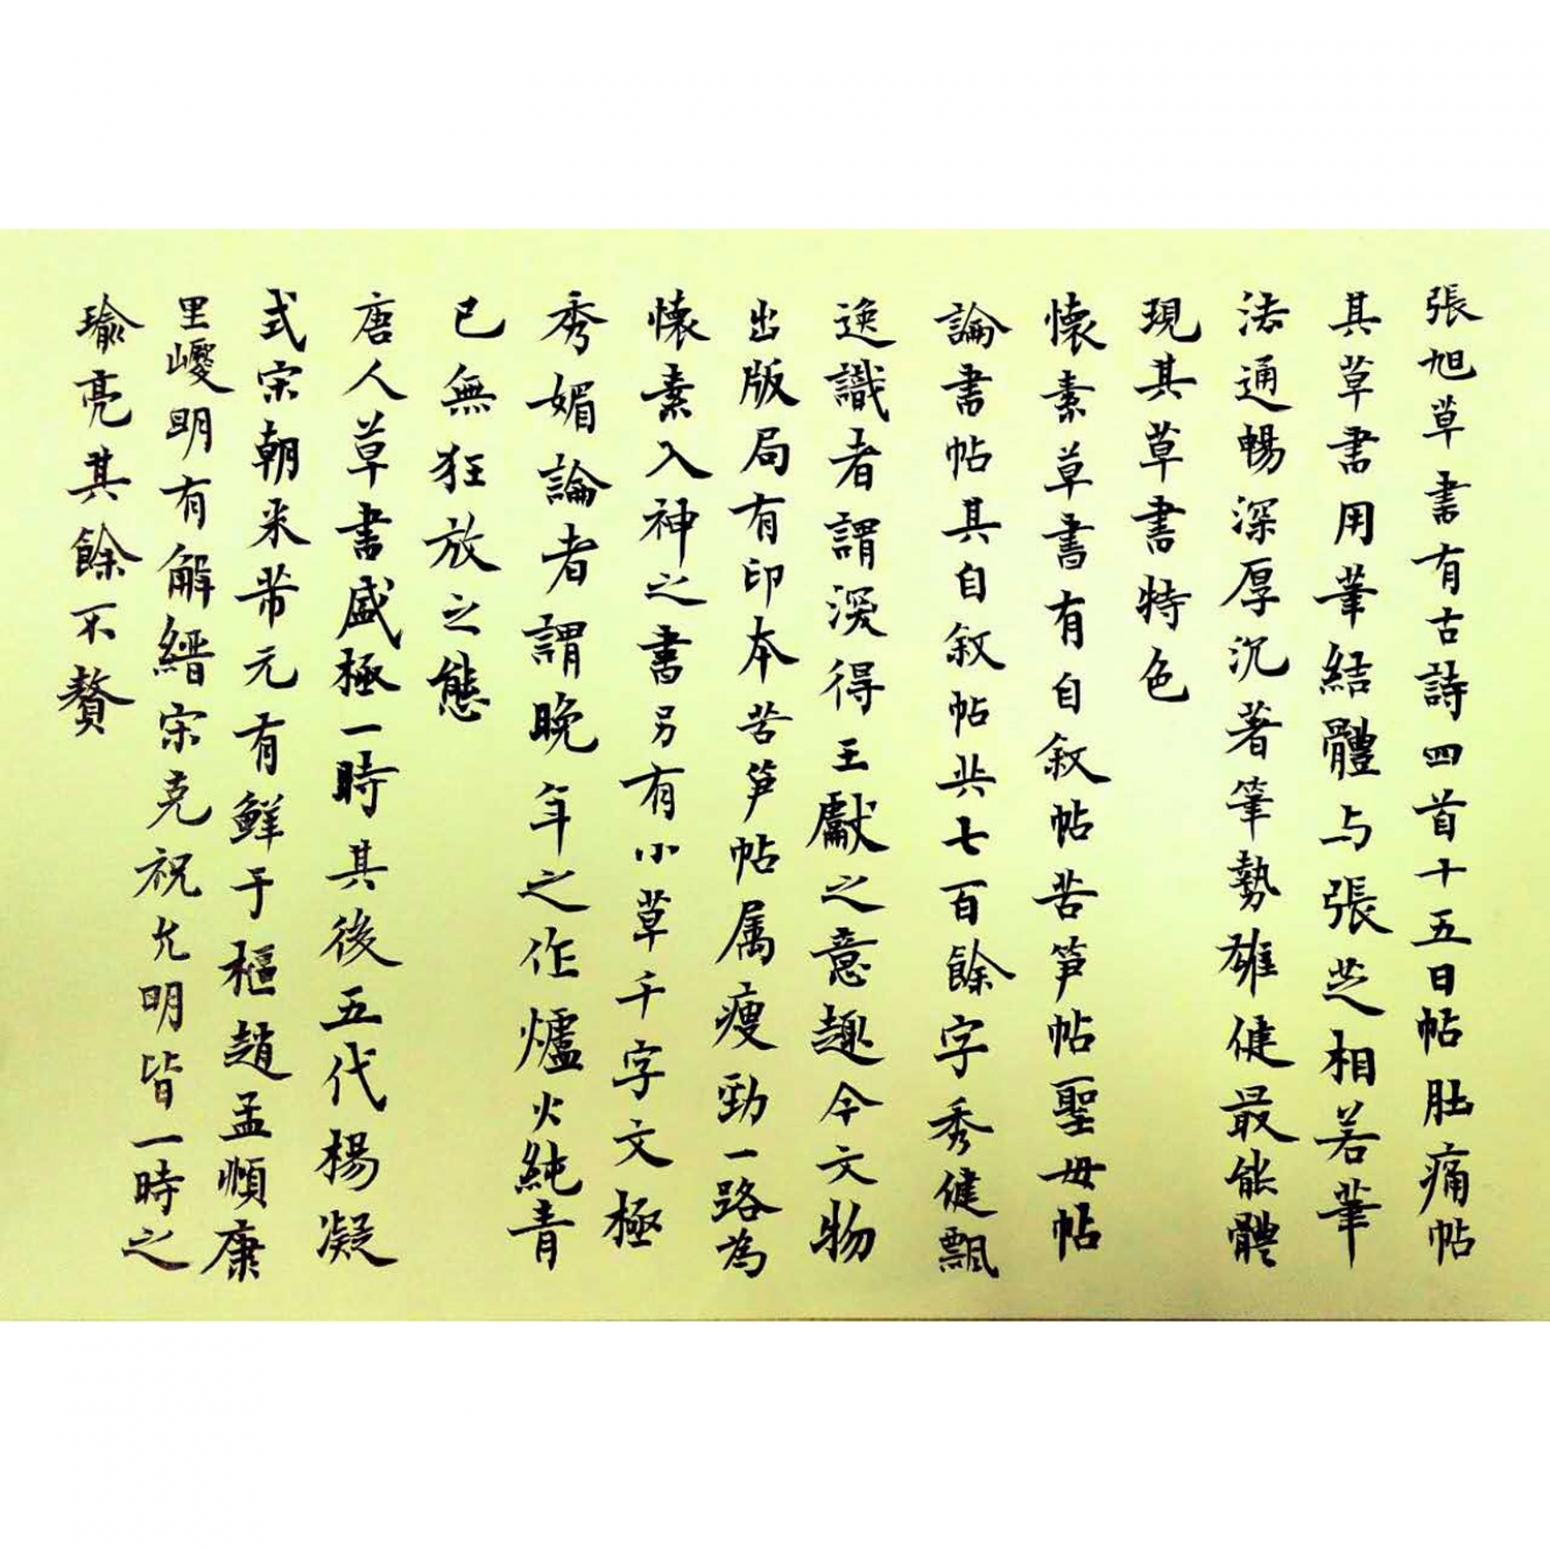 張旭草書有古詩四首十五日帖肚痛帖
其草書用筆結體与張芝相若筆
法通暢深厚沉著筆勢雄健最能體
現其草書特色
懷素草書有自敘帖苦笋帖聖母帖
論書帖其自敘帖共七百餘字秀健飄
逸識者謂深得王獻之意趣今文物
出版局有印本苦笋帖属瘦勁一路為
懷素入神之書另有小草千字文極
秀媚論者謂晚年之作爐火純青
已無狂放之態
唐人草書盛極一時其後五代楊凝
式宋朝米芾元有鲜于樞趙孟頫康
里巎明有解縉宋克祝允明皆一時之
瑜亮其餘不贅